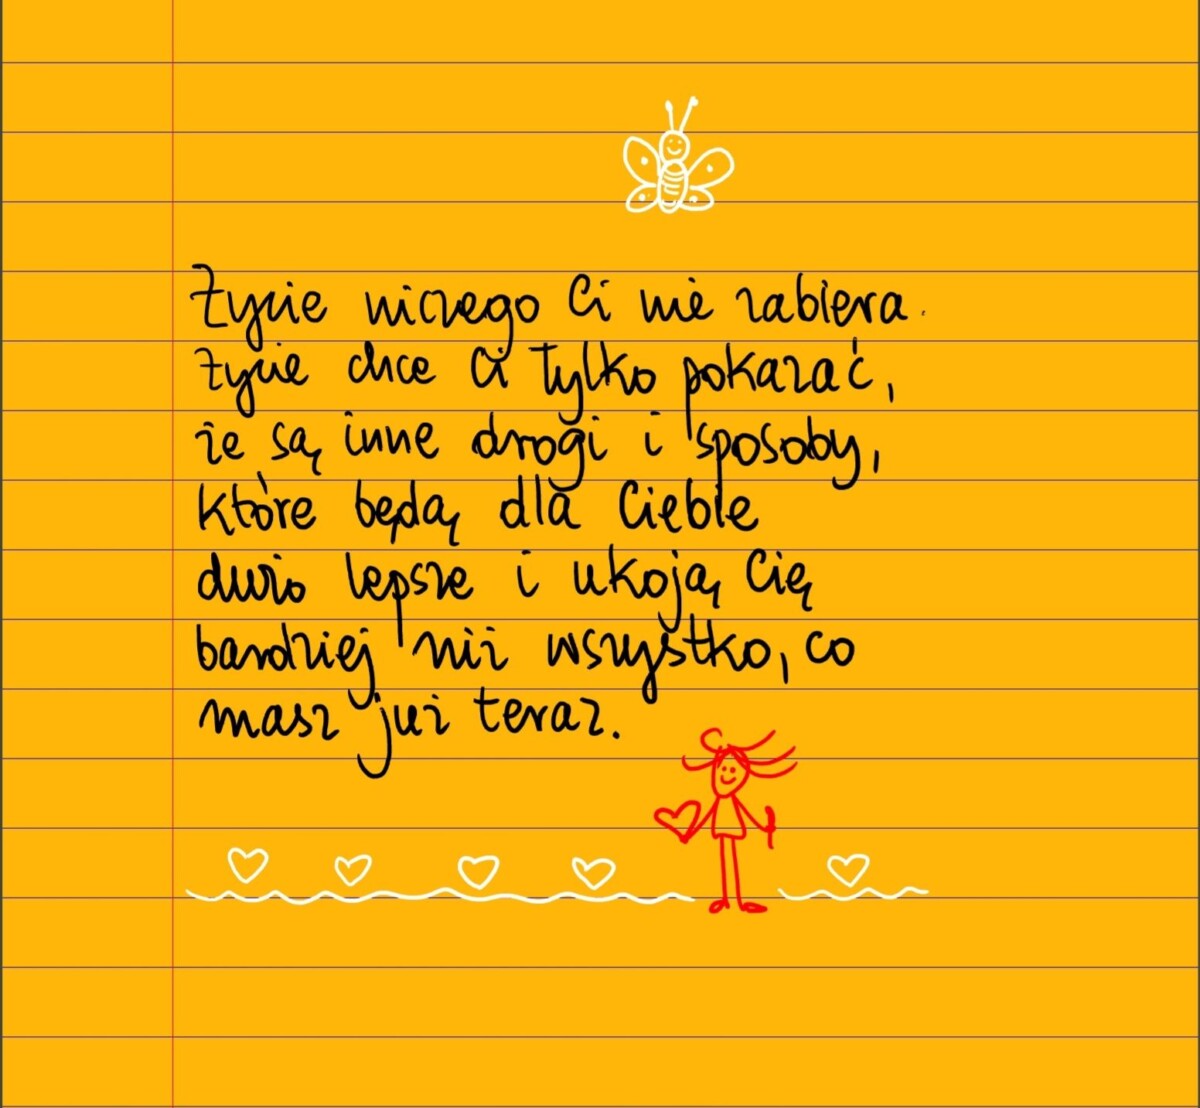 Życie niczego Ci nie zabiera.
Życie chce Ci tylko pokazać,
że są inne drogi i sposoby,
które będą dla Ciebie
dużo lepsze i ukoją Cię
bardziej niż wszystko, co
masz już teraz.